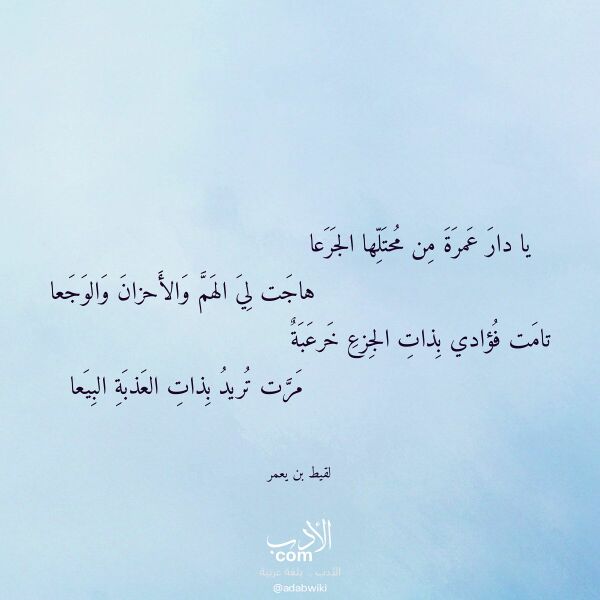 يا دارَ عَمرَةَ مِن مُحتَلِّها الجَرَعا
هاجَت لِيَ الهَمَّ وَالأَحزانَ وَالوَجَعا
تامَت فُؤادي بِذاتِ الجِزعِ خَرعَبَةٌ
مَرَّت تُريدُ بِذاتِ العَذبَةِ البِيَعا
لقيط بن يعمر
الأدب
com
الأدب .. بلغة عربية
@adabwiki